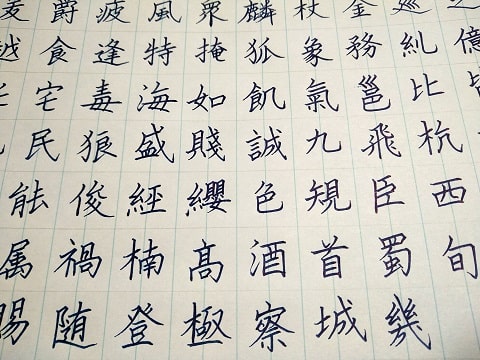 爵疲風衆麟杖金巡
越食逢特掩狐象務糺億
宅毒海如飢氣邕比
民狼盛賤誠九飛杭
能俊經纓色規臣西
属禍楠高酒首蜀旬
賜随登極察城幾